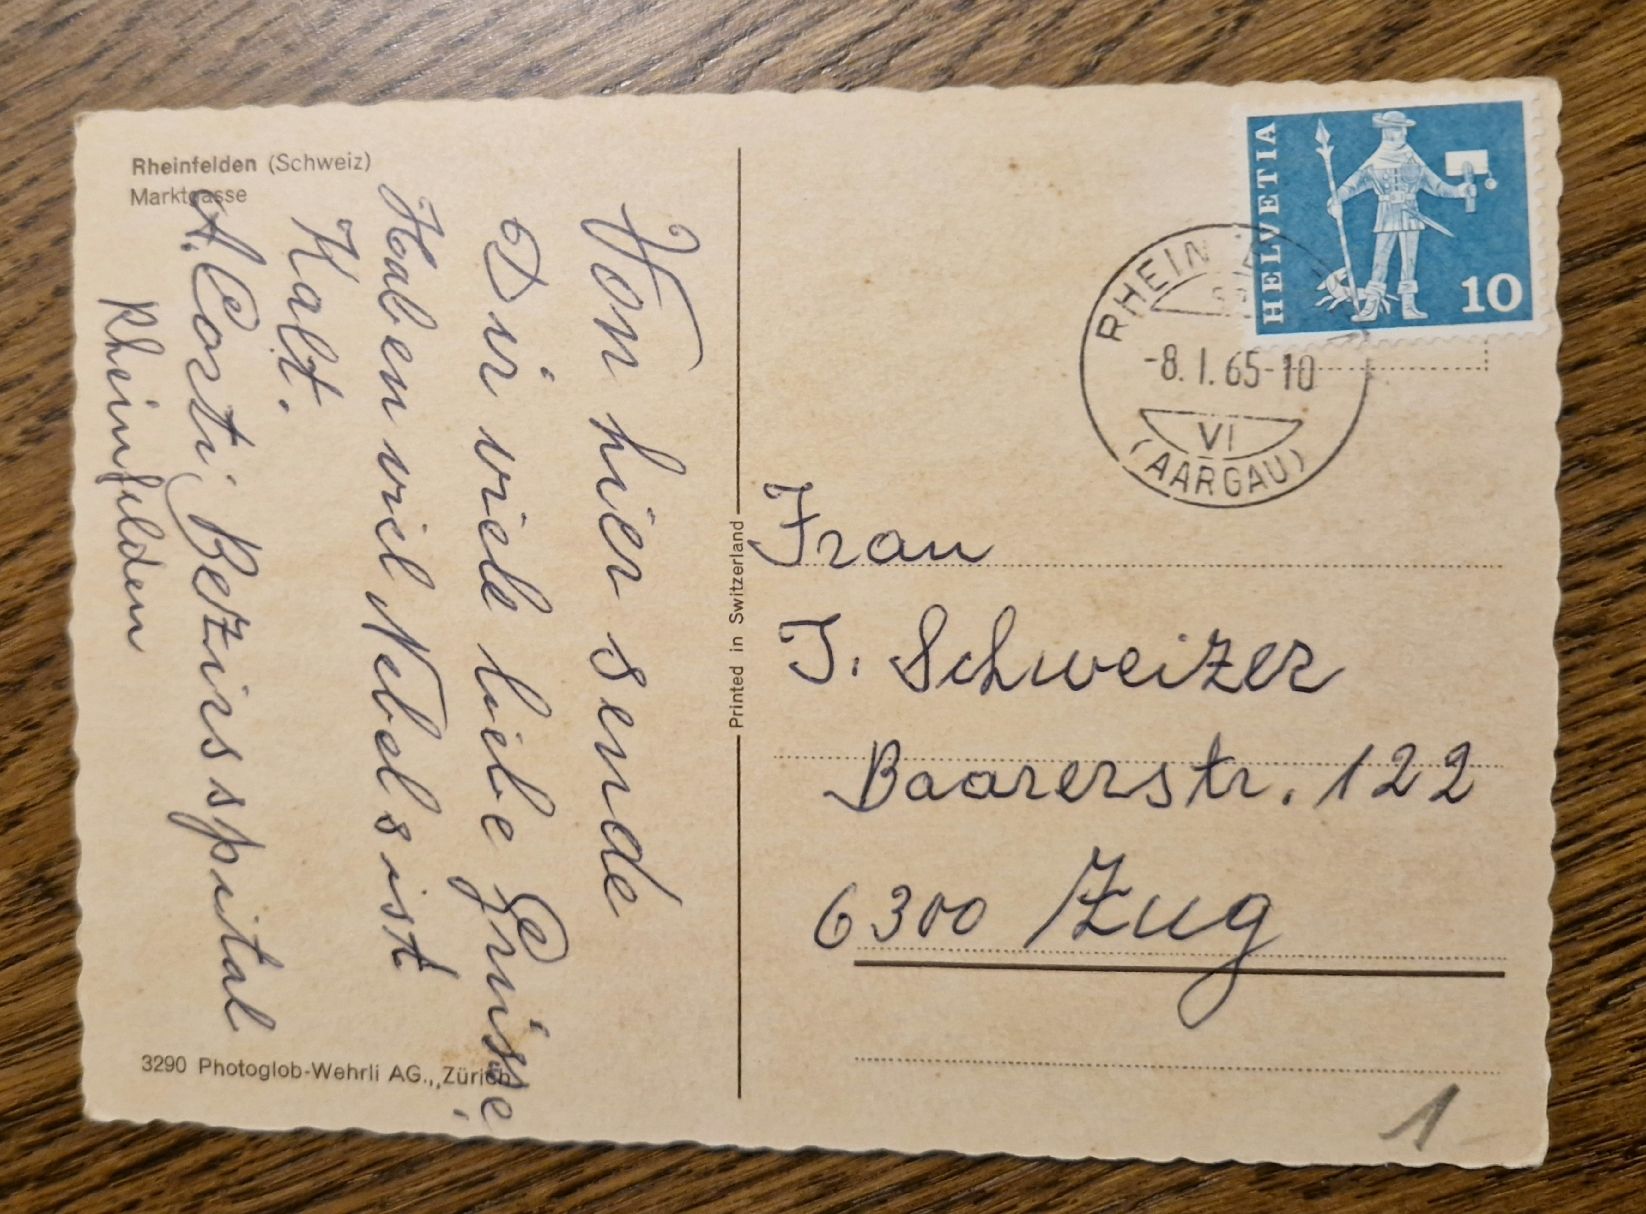 Rheinfelden (Schweiz)
Marktgasse
Von hier sende
Dir viele liebe Grüsse,
Haben viel Nebel s ist
Kalt.
A. Costi. Bezirsspital
Rheinfelden
3290 Photoglob-Wehrli AG., Zürich
Printed in Switzerland
HELVETIA
10
-8.I.65-10
VI
(AARGAU)
Frau
J. Schweizer
Baarerstr. 122
6300 Zug
1